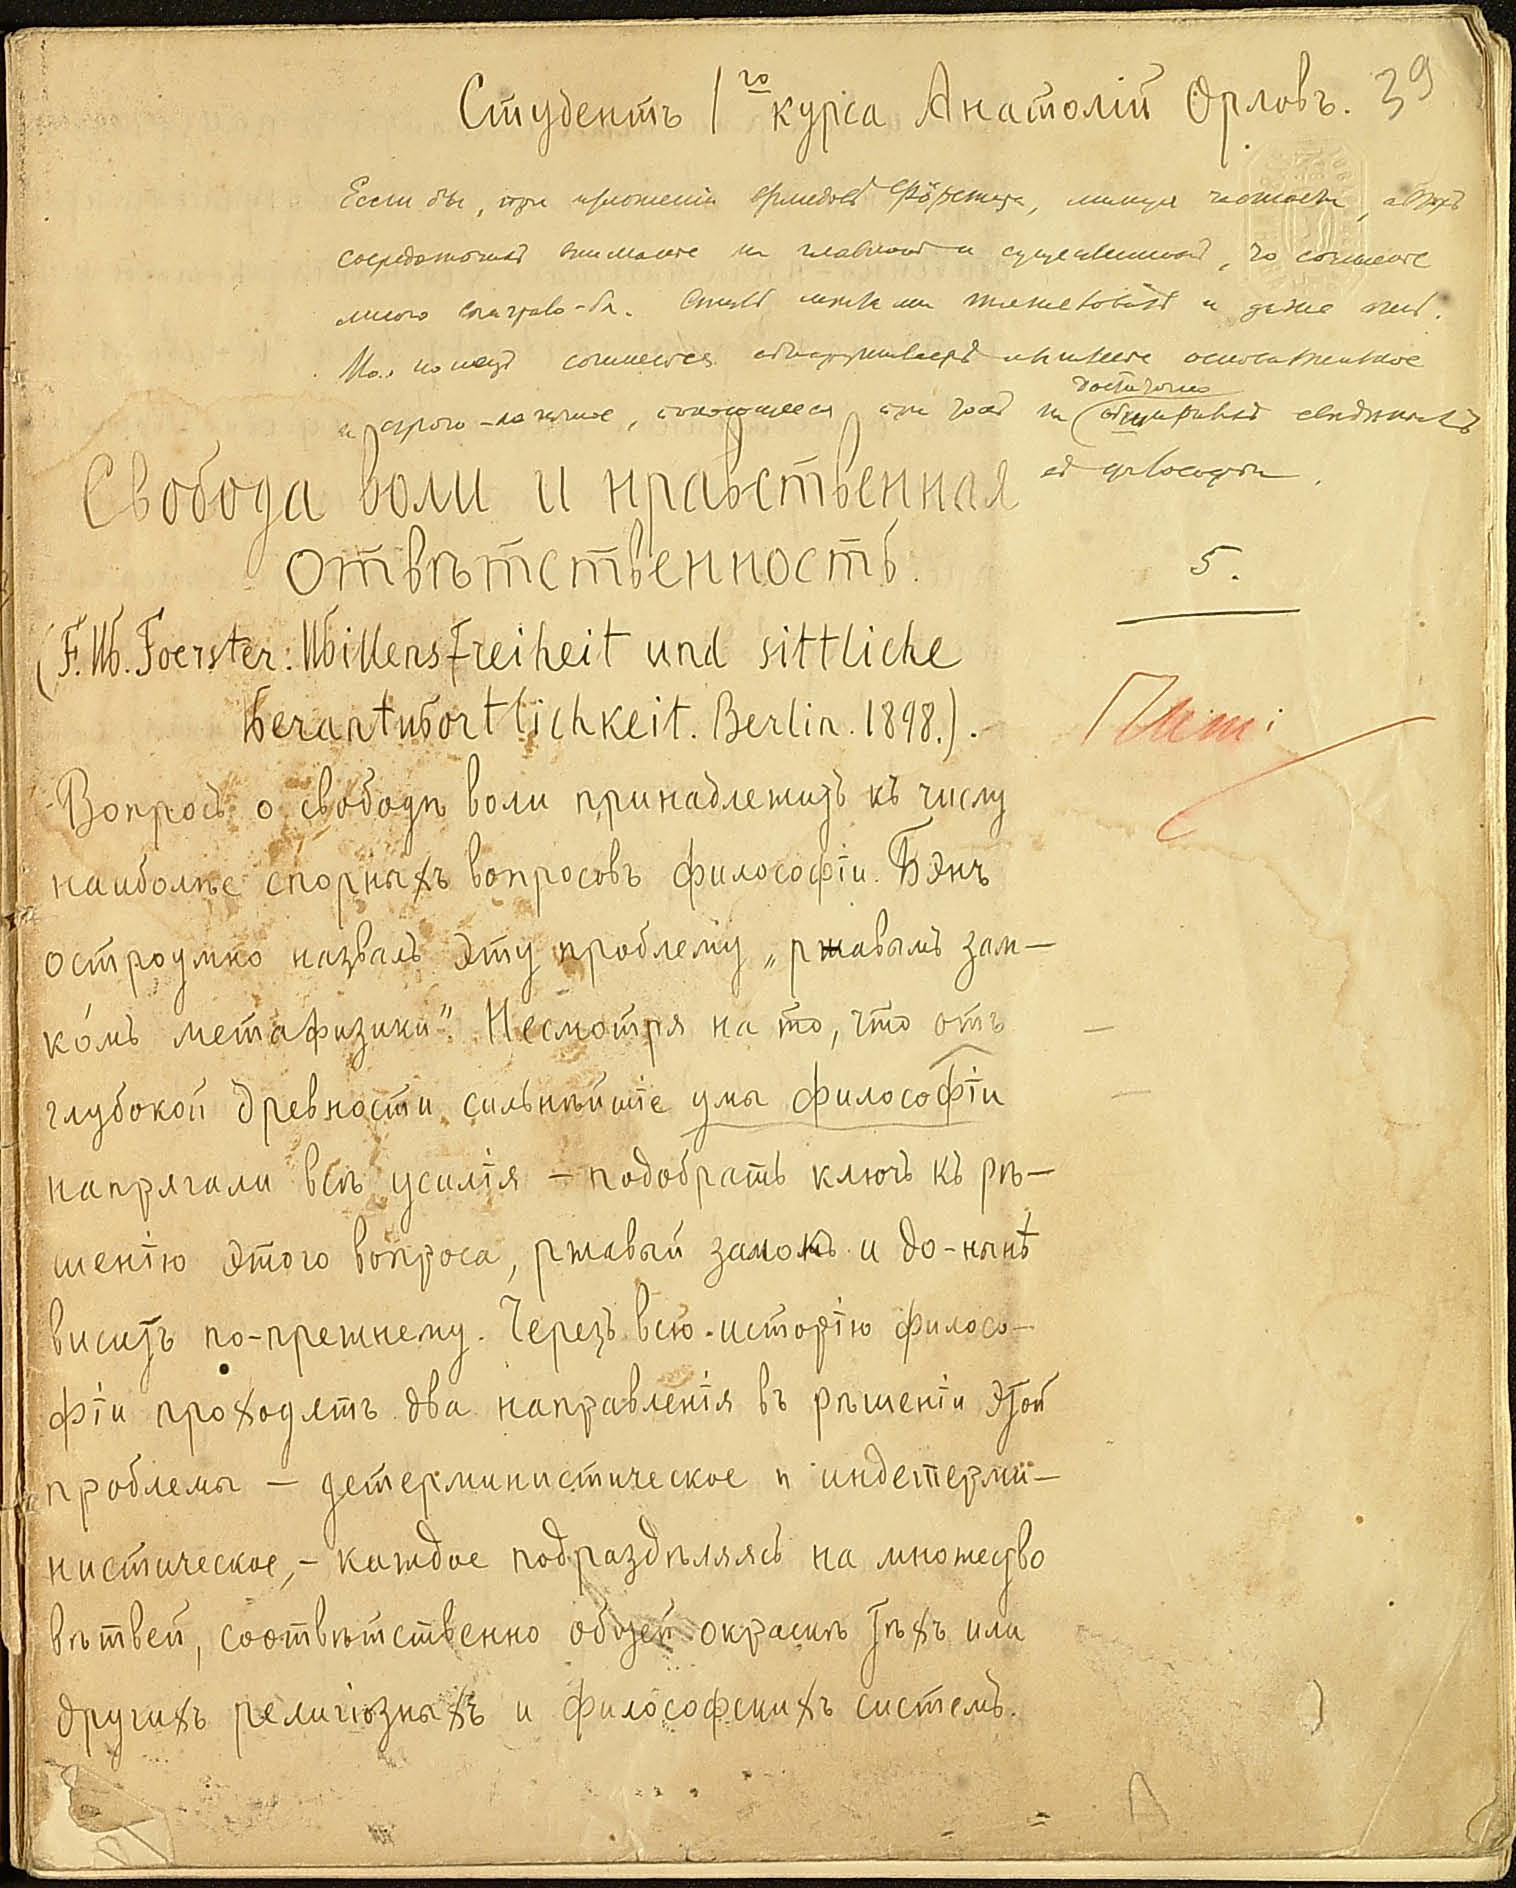 Студентъ 1го курса Анатолій Орловъ. 39
Если бы, при изложеніи Фёрстера, минуя частности, авторъ
сосредоточилъ вниманіе на главномъ и существенномъ, то сочиненіе
много выиграло-бы. и даже
сочиненія обнаруживаетъ основательное
и строго-логичное, при томъ на достаточно обширныхъ свѣдѣніяхъ
философіи.
Свобода воли и нравственная
отвѣтственность.
5.
(F. W. Foerster: Willensfreiheit und sittliche
Verantwortlichkeit. Berlin. 1898.).
Вопросъ о свободѣ воли принадлежитъ къ числу
наиболѣе спорныхъ вопросовъ философіи. Бэнъ
остроумно назвалъ эту проблему „ржавымъ зам-
ко́мъ метафизики". Несмотря на то, что отъ
глубокой древности сильнѣйшіе умы философіи
напрягали всѣ усилія – подобрать ключъ къ рѣ-
шенію этого вопроса, ржавый замокъ и до-нынѣ
виситъ по-прежнему. Черезъ всю исторію филосо-
фіи проходятъ два направленія въ рѣшеніи этой
проблемы – детерминистическое и индетерми-
нистическое, – каждое подраздѣляясь на множество
вѣтвей, соотвѣтственно общей окраскѣ тѣхъ или
другихъ религіозныхъ и философскихъ системъ.